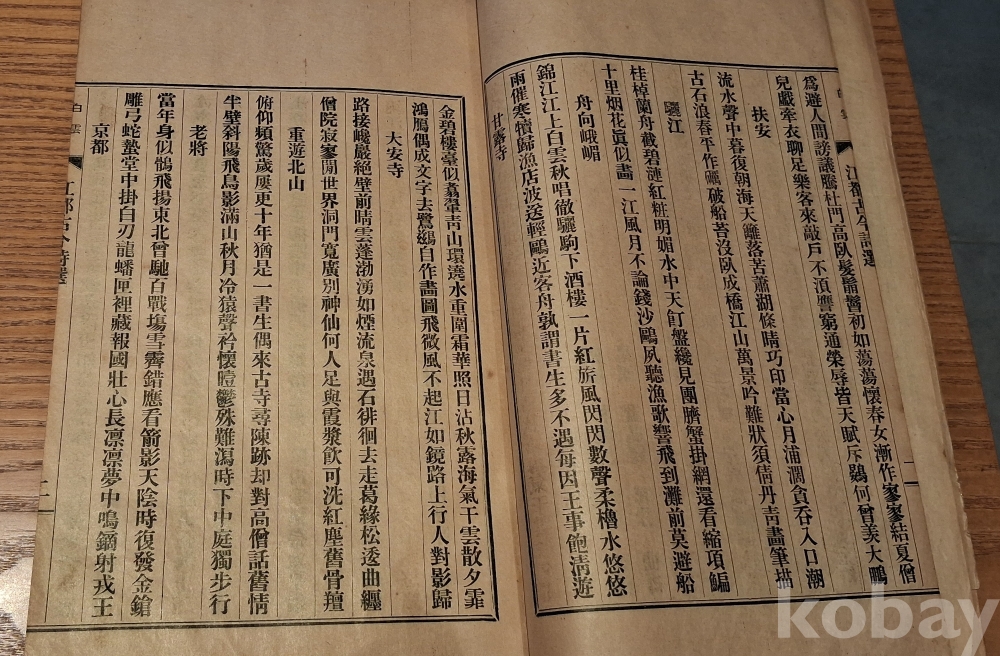 爲避人間謗議騰杜門高臥髮鬅鬙初如蕩蕩懷春女漸作寥寥結夏僧
兒戲牽衣聊足樂客來敲戶不須譍窮通榮辱皆天賦斥鷃何曾羨大鵬
扶安
流水聲中暮復朝海天籬落苦蕭湖條晴巧印當心月浦濶貪呑入口潮
古石浪舂平作礪破船苔沒臥成橋江山萬景吟難狀須倩丹靑畫筆描
驪江
桂棹蘭舟截碧漣紅粧明媚水中天飣盤纔見團臍蟹掛網還看縮項鯿
十里烟花眞似畫一江風月不論錢沙鷗夙聽漁歌響飛到灘前莫避船
舟向峨嵋
錦江江上白雲秋唱徹驪駒下酒樓一片紅旂風閃閃數聲柔櫓水悠悠
雨催寒犢歸漁店波送輕鷗近客舟孰謂書生多不遇每因王事飽淸遊
甘露寺
金碧樓臺似翥翬靑山環遶水重圍霜華照日沾秋露海氣干雲散夕霏
鴻鴈偶成文字去鷺鷀自作畵圖飛微風不起江如鏡路上行人對影歸
大安寺
路接巉巖絕壁前晴雲蓬渤湧如煙流泉遇石徘徊去走葛緣松透曲纏
僧院寂寥閒世界洞門寬廣別神仙何人足與霞漿飮可洗紅塵舊骨羶
重遊北山
俯仰頻驚歲屢更十年猶是一書生偶來古寺尋陳跡却對高僧話舊情
半壁斜陽飛鳥影滿山秋月冷猿聲衿懷曀鬱殊難瀉時下中庭獨步行
老將
當年身似鶻飛揚東北曾馳百戰塲雪霽錯應看箭影天陰時復發金鎗
雕弓蛇蟄堂中掛白刃龍蟠匣裡藏報國壯心長凛凛夢中鳴鏑射戎王
京都
白雲
二
kobay